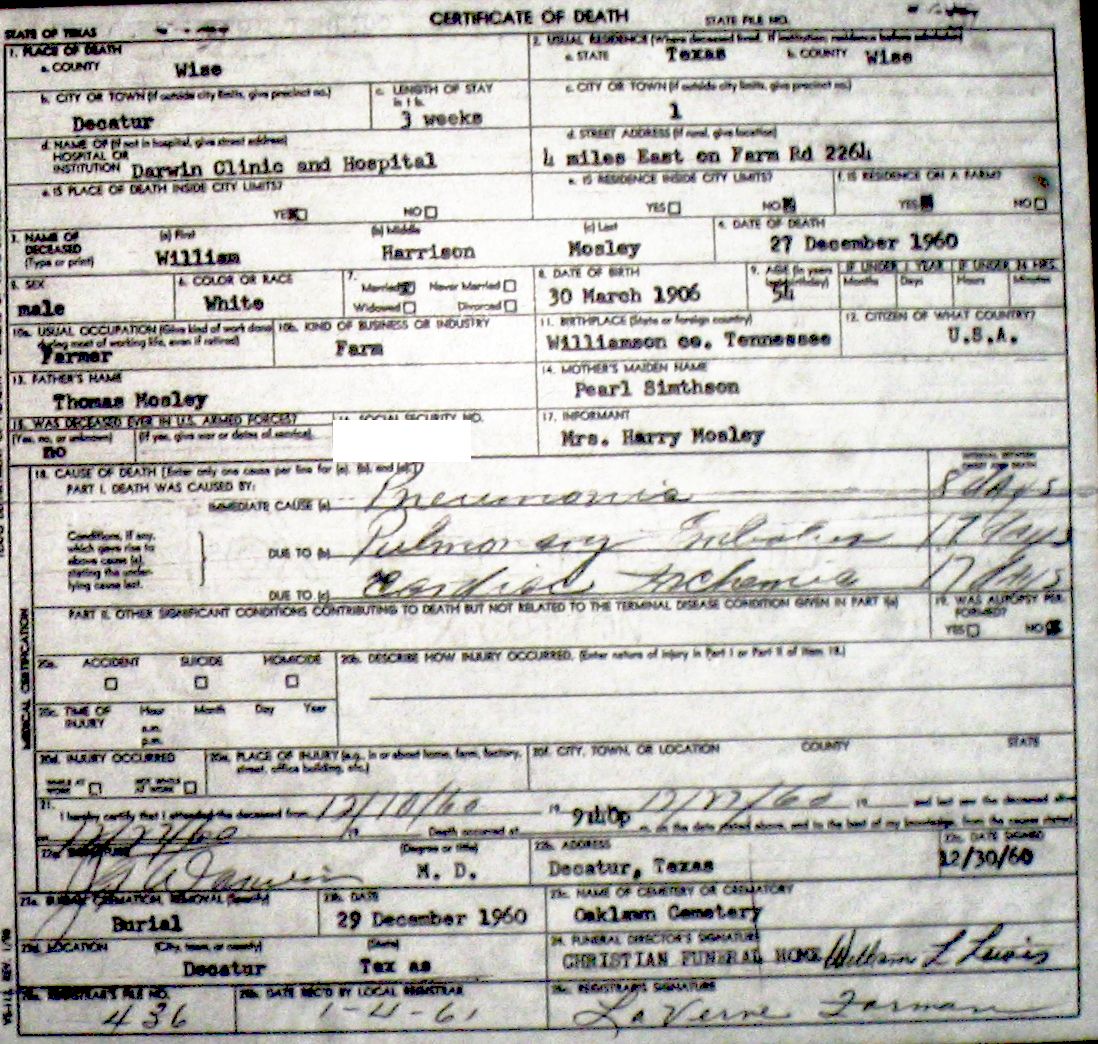 CERTIFICATE OF DEATH
STATE OF TEXAS STATE FILE NO.
1. PLACE OF DEATH 2. USUAL RESIDENCE (Where deceased lived. If institution: residence before admission)
a. COUNTY Wise a. STATE Texas b. COUNTY Wise
b. CITY OR TOWN (If outside city limits, give precinct no.) c. LENGTH OF STAY in 1 b. c. CITY OR TOWN (If outside city limits, give precinct no.)
Decatur 3 weeks 1
d. NAME OF (If not in hospital, give street address) HOSPITAL OR INSTITUTION d. STREET ADDRESS (If rural, give location)
Darwin Clinic and Hospital 4 miles East on Farm Rd 2264
e. IS PLACE OF DEATH INSIDE CITY LIMITS? e. IS RESIDENCE INSIDE CITY LIMITS? f. IS RESIDENCE ON A FARM?
YES NO YES NO YES NO
3. NAME OF DECEASED (Type or print) (a) First (b) Middle (c) Last 4. DATE OF DEATH
William Harrison Mosley 27 December 1960
5. SEX 6. COLOR OR RACE 7. Married Never Married 8. DATE OF BIRTH 9. AGE (In years last birthday) IF UNDER 1 YEAR IF UNDER 24 HRS.
Months Days Hours Minutes
male White Widowed Divorced 30 March 1906 54
10a. USUAL OCCUPATION (Give kind of work done during most of working life, even if retired) 10b. KIND OF BUSINESS OR INDUSTRY 11. BIRTHPLACE (State or foreign country) 12. CITIZEN OF WHAT COUNTRY?
Farmer Farm Williamson co. Tennessee U.S.A.
13. FATHER'S NAME 14. MOTHER'S MAIDEN NAME
Thomas Mosley Pearl Simthson
15. WAS DECEASED EVER IN U.S. ARMED FORCES? 16. SOCIAL SECURITY NO. 17. INFORMANT
(Yes, no, or unknown) (If yes, give war or dates of service)
no Mrs. Harry Mosley
18. CAUSE OF DEATH [Enter only one cause per line for (a), (b), and (c).] INTERVAL BETWEEN ONSET AND DEATH
PART I. DEATH WAS CAUSED BY:
IMMEDIATE CAUSE (a) Pneumonia 8 days
Conditions, if any, which gave rise to above cause (a), stating the underlying cause last.
DUE TO (b) Pulmonary Embolism 17 days
DUE TO (c) Cardiac Ischemia 17 days
PART II. OTHER SIGNIFICANT CONDITIONS CONTRIBUTING TO DEATH BUT NOT RELATED TO THE TERMINAL DISEASE CONDITION GIVEN IN PART I(a) 19. WAS AUTOPSY PERFORMED?
YES NO
MEDICAL CERTIFICATION
20a. ACCIDENT SUICIDE HOMICIDE 20b. DESCRIBE HOW INJURY OCCURRED. (Enter nature of injury in Part I or Part II of Item 18.)
20c. TIME OF INJURY Hour Month Day Year
a.m.
p.m.
20d. INJURY OCCURRED 20e. PLACE OF INJURY (e.g., in or about home, farm, factory, street, office building, etc.) 20f. CITY, TOWN, OR LOCATION COUNTY STATE
WHILE AT WORK NOT WHILE AT WORK
21. I hereby certify that I attended the deceased from 12/10/60 19 12/27/60 19 and last saw the deceased alive
12/27/60 19 Death occurred at 9:40p m. on the date stated above, and to the best of my knowledge, from the causes stated.
22a. SIGNATURE (Degree or title) 22b. ADDRESS 22c. DATE SIGNED
M. D. Decatur, Texas 12/30/60
23a. BURIAL, CREMATION, REMOVAL (Specify) 23b. DATE 23c. NAME OF CEMETERY OR CREMATORY
Burial 29 December 1960 Oaklawn Cemetery
23d. LOCATION (City, town, or county) (State) 24. FUNERAL DIRECTOR'S SIGNATURE
Decatur Tex as CHRISTIAN FUNERAL HOME William L Lewis
25a. REGISTRAR'S FILE NO. 25b. DATE REC'D BY LOCAL REGISTRAR 25c. REGISTRAR'S SIGNATURE
436 1-4-61 La Verne Forman